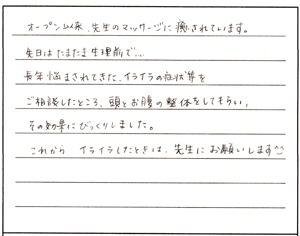 オープン以来、先生のマッサージに癒されています。
先日はたまたま生理前で…
長年悩まされてきた、イライラの症状等を
ご相談したところ、頭とお腹の整体をしてもらい、
その効果にびっくりしました。
これから イライラしたときは、先生にお願いします^^